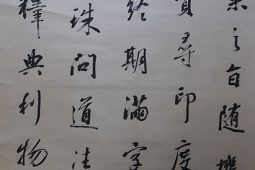 之旨随機
貝尋印度
終期滿字
珠問道法
釋典利物